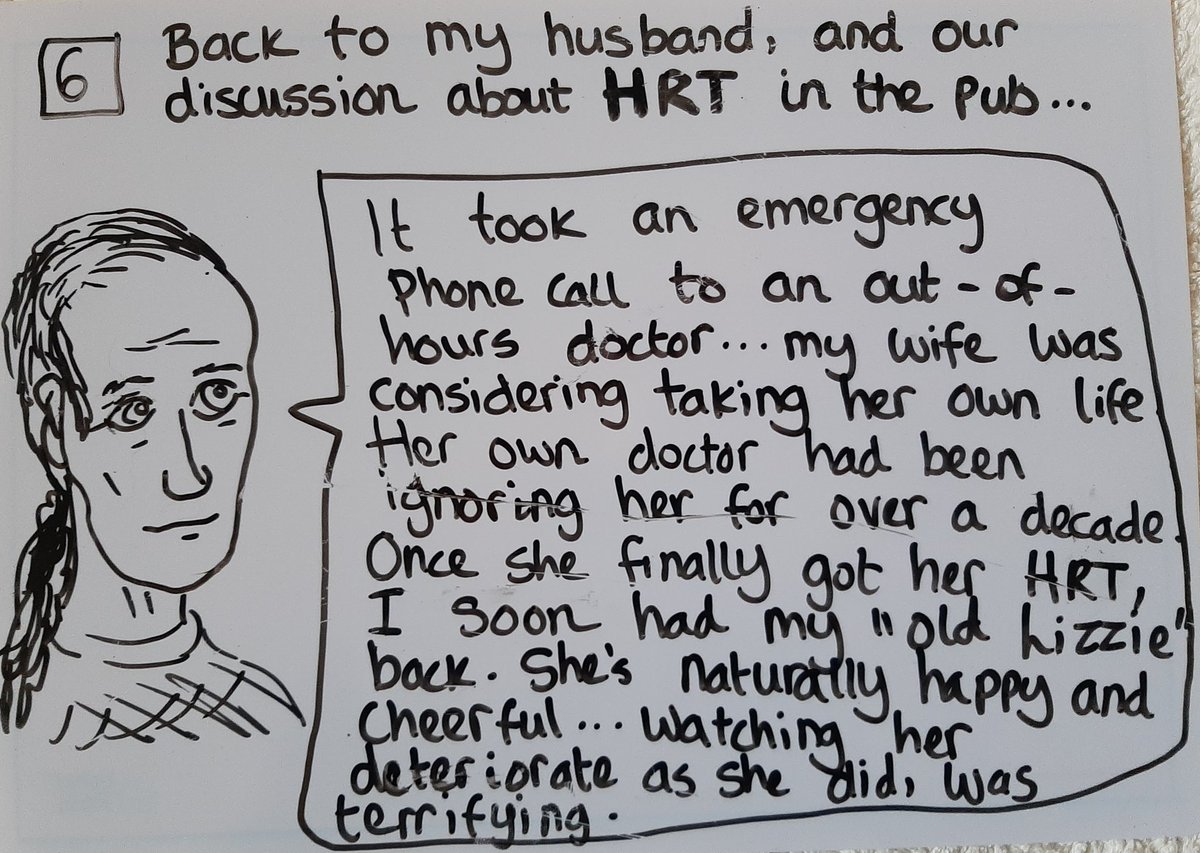 6
Back to my husband, and our
discussion about HRT in the pub...
It took an emergency
phone call to an out-of-
hours doctor... my wife was
considering taking her own life
Her own doctor had been
ignoring her for over a decade.
Once she finally got her HRT,
I soon had my "old Lizzie"
back. She's naturally happy and
cheerful... watching her
deteriorate as she did, was
terrifying.